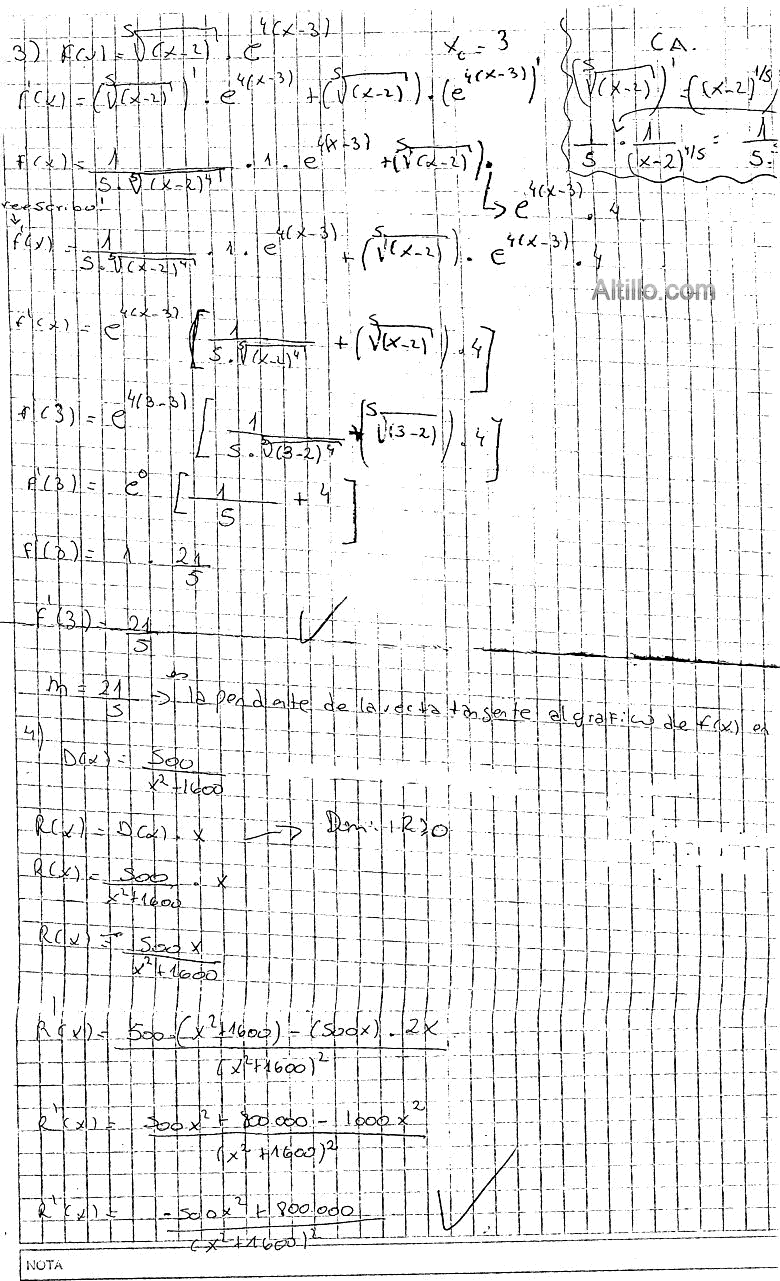 3) f(x) = ⁵√(x-2) . e^4(x-3)    x₀ = 3
f'(x) = (⁵√(x-2))' . e^4(x-3) + (⁵√(x-2)) . (e^4(x-3))'
C.A.
(⁵√(x-2))' = ((x-2)^1/5
1/5 . 1/(x-2)^4/5 = 1/5.
f'(x) = 1/(5.⁵√(x-2)^4) . 1 . e^4(x-3) + (⁵√(x-2)) .
↳ e^4(x-3) . 4
reescribo!
f'(x) = 1/(5.⁵√(x-2)^4) . 1 . e^4(x-3) + (⁵√(x-2)) . e^4(x-3) . 4
Altillo.com
f'(x) = e^4(x-3) [1/(5.⁵√(x-2)^4) + (⁵√(x-2)) . 4]
f'(3) = e^4(3-3) [1/(5.⁵√(3-2)^4) + (⁵√(3-2)) . 4]
f'(3) = e^0 [1/5 + 4]
f'(3) = 1 . 21/5
f'(3) = 21/5
m = 21/5 → es la pendiente de la recta tangente al grafico de f(x) en
4)
D(x) = 500/(x²+1600)
R(x) = D(x) . x → Dom: R≥0
R(x) = 500/(x²+1600) . x
R(x) = 500x/(x²+1600)
R'(x) = (500.(x²+1600) - (500x) . 2x)/(x²+1600)²
R'(x) = (500x² + 800.000 - 1000x²)/(x²+1600)²
R'(x) = (-500x² + 800.000)/(x²+1600)²
NOTA